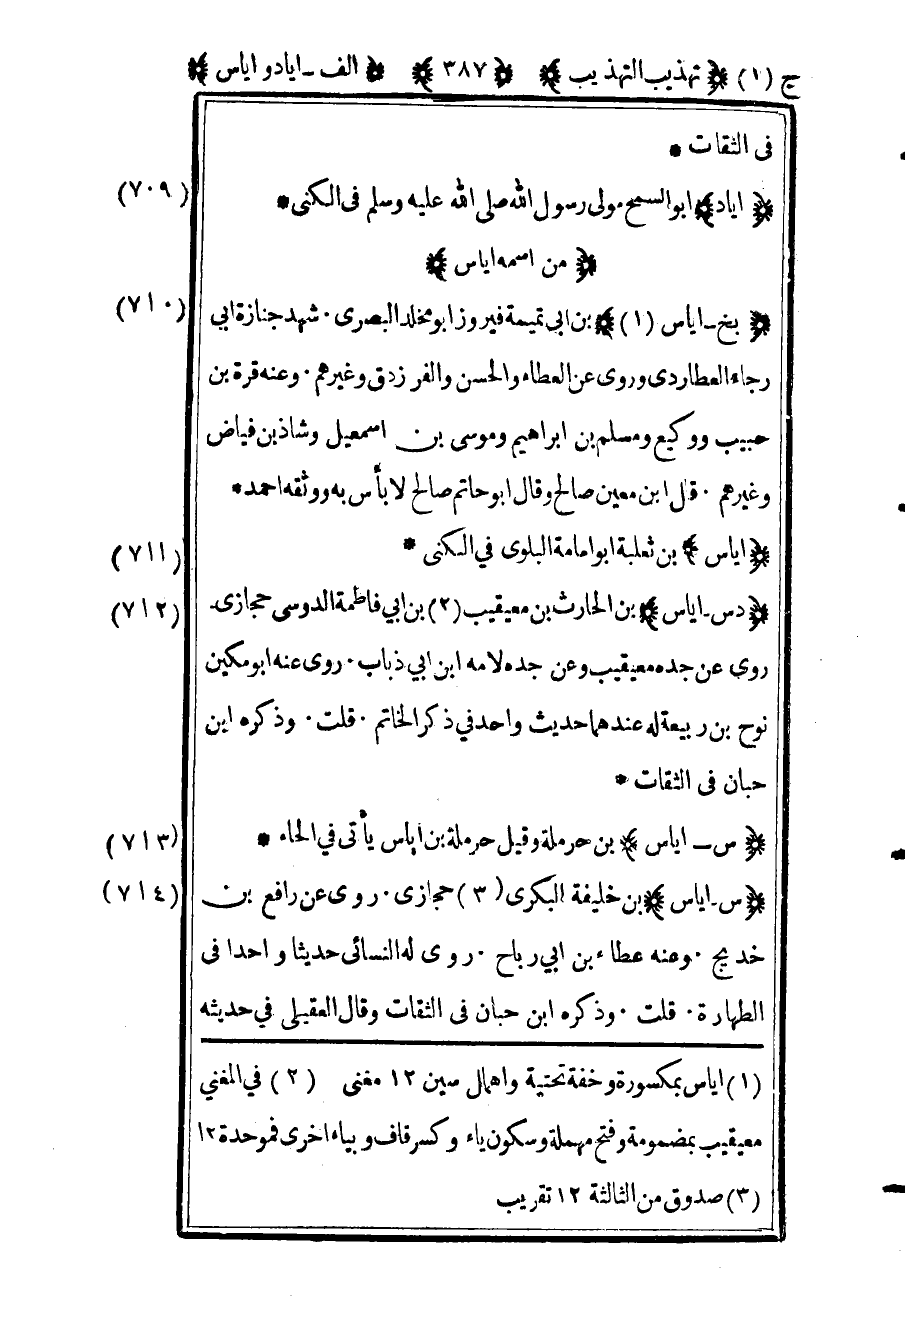 ج (١) ﴿ تهذيب التهذيب ﴾ ﴿ ٣٨٧ ﴾ ﴿ الف ـ اياد و اياس ﴾
فى الثقات *
(٧٠٩) ﴿ اياد ﴾ ابو السمح مولى رسول الله صلى الله عليه وسلم فى الكنى *
﴿ من اسمه اياس ﴾
(٧١٠) ﴿ بخ ـ اياس (١) ﴾ بن ابي تميمة فيروز ابو مخلد البصرى . شهد جنازة ابي
رجاء العطاردى وروى عن العطاء والحسن والفرزدق وغيرهم . وعنه قرة بن
حبيب ووكيع ومسلم بن ابراهيم وموسى بن اسمعيل وشاذ بن فياض
وغيرهم . قال ابن معين صالح وقال ابو حاتم صالح لا بأس به ووثقه احمد *
(٧١١) ﴿ اياس ﴾ بن ثعلبة ابو امامة البلوى في الكنى *
(٧١٢) ﴿ دس ـ اياس ﴾ بن الحارث بن معيقيب (٢) بن ابي فاطمة الدوسى حجازى .
روى عن جده معيقيب وعن جده لامه ابن ابي ذباب . روى عنه ابو مكين
نوح بن ربيعة له عندهما حديث واحد في ذكر الخاتم . قلت . وذكره ابن
حبان فى الثقات *
(٧١٣) ﴿ س ـ اياس ﴾ بن حرملة وقيل حرملة بن اياس يأتى في الحاء *
(٧١٤) ﴿ س ـ اياس ﴾ بن خليفة البكرى (٣) حجازى . روى عن رافع بن
خديج . وعنه عطاء بن ابي رباح . روى له النسائى حديثا واحدا فى
الطهارة . قلت . وذكره ابن حبان فى الثقات وقال العقيلى في حديثه
(١) اياس بمكسورة وخفة تحتية واهمال سين ١٢ مغنى (٢) في المغني
معيقيب بمضمومة وفتح مهملة وسكون ياء وكسر قاف وبياء اخرى فموحدة ١٢
(٣) صدوق من الثالثة ١٢ تقريب